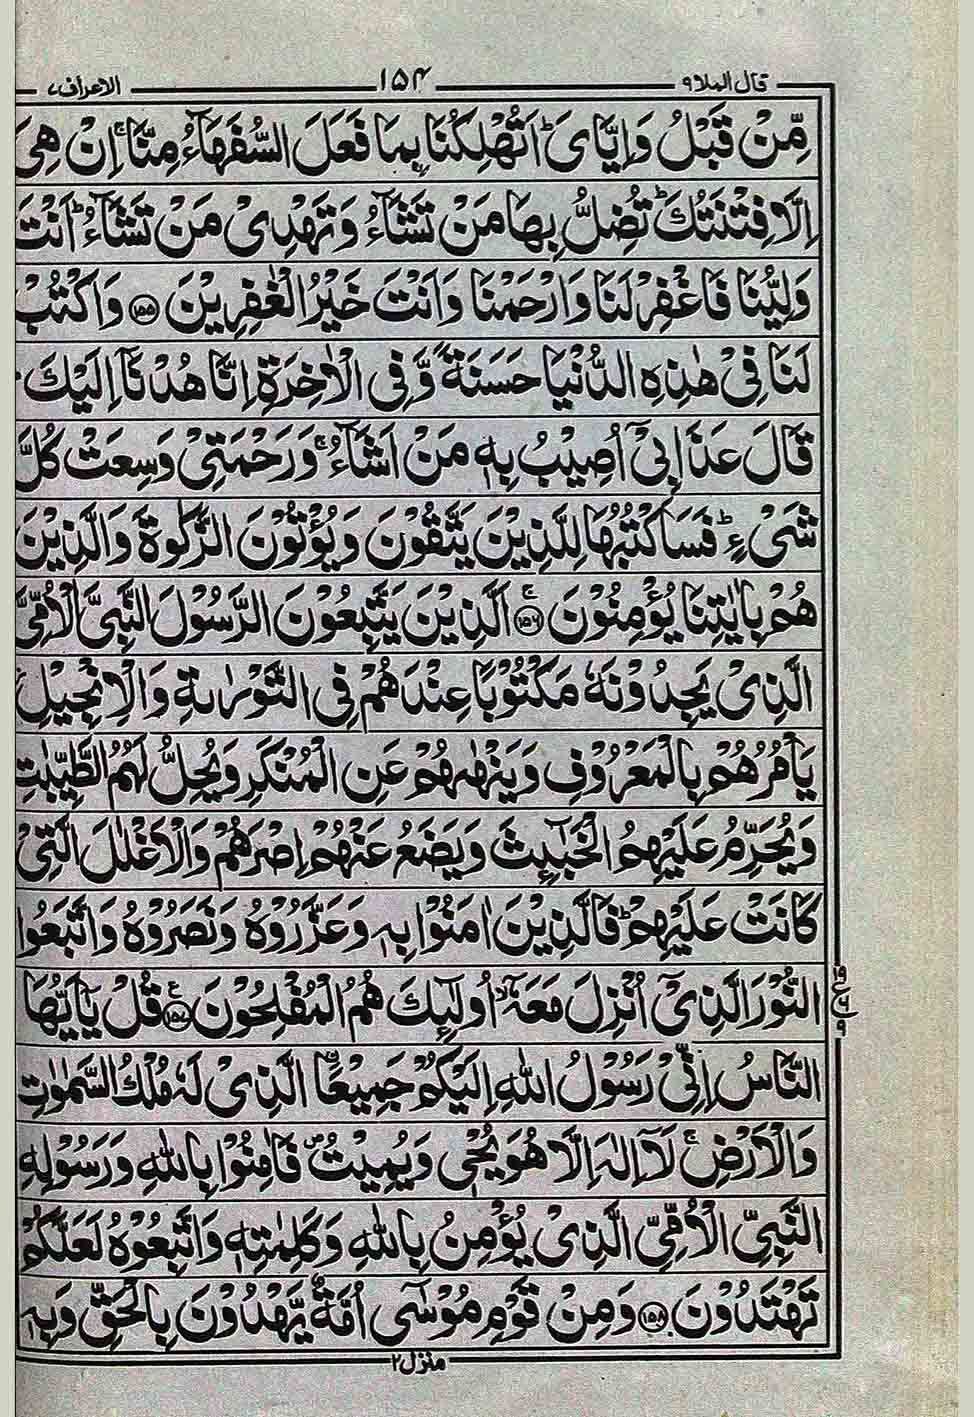 قال الملا ٩ ١٥٤ الاعراف ٧
مِّنْ قَبْلُ وَاِيَّایَ ؕ اَتُهْلِكُنَا بِمَا فَعَلَ السُّفَهَآءُ مِنَّا ۚ اِنْ هِیَ
اِلَّا فِتْنَتُكَ ؕ تُضِلُّ بِهَا مَنْ تَشَآءُ وَتَهْدِیْ مَنْ تَشَآءُ ؕ اَنْتَ
وَلِیُّنَا فَاغْفِرْ لَنَا وَارْحَمْنَا وَاَنْتَ خَیْرُ الْغٰفِرِیْنَ ﴿۱۵۵﴾ وَاكْتُبْ
لَنَا فِیْ هٰذِهِ الدُّنْیَا حَسَنَةً وَّفِی الْاٰخِرَةِ اِنَّا هُدْنَاۤ اِلَیْكَ ؕ
قَالَ عَذَابِیْۤ اُصِیْبُ بِهٖ مَنْ اَشَآءُ ۚ وَرَحْمَتِیْ وَسِعَتْ كُلَّ
شَیْءٍ ؕ فَسَاَكْتُبُهَا لِلَّذِیْنَ یَتَّقُوْنَ وَیُؤْتُوْنَ الزَّكٰوةَ وَالَّذِیْنَ
هُمْ بِاٰیٰتِنَا یُؤْمِنُوْنَ ﴿۱۵۶﴾ۚ اَلَّذِیْنَ یَتَّبِعُوْنَ الرَّسُوْلَ النَّبِیَّ الْاُمِّیَّ
الَّذِیْ یَجِدُوْنَهٗ مَكْتُوْبًا عِنْدَهُمْ فِی التَّوْرٰىةِ وَالْاِنْجِیْلِ
یَاْمُرُهُمْ بِالْمَعْرُوْفِ وَیَنْهٰىهُمْ عَنِ الْمُنْكَرِ وَیُحِلُّ لَهُمُ الطَّیِّبٰتِ
وَیُحَرِّمُ عَلَیْهِمُ الْخَبٰٓىِٕثَ وَیَضَعُ عَنْهُمْ اِصْرَهُمْ وَالْاَغْلٰلَ الَّتِیْ
كَانَتْ عَلَیْهِمْ ؕ فَالَّذِیْنَ اٰمَنُوْا بِهٖ وَعَزَّرُوْهُ وَنَصَرُوْهُ وَاتَّبَعُوا
النُّوْرَ الَّذِیْۤ اُنْزِلَ مَعَهٗۤ ۙ اُولٰٓىِٕكَ هُمُ الْمُفْلِحُوْنَ ﴿۱۵۷﴾ۧ قُلْ یٰۤاَیُّهَا
النَّاسُ اِنِّیْ رَسُوْلُ اللّٰهِ اِلَیْكُمْ جَمِیْعًا الَّذِیْ لَهٗ مُلْكُ السَّمٰوٰتِ
وَالْاَرْضِ ۚ لَاۤ اِلٰهَ اِلَّا هُوَ یُحْیٖ وَیُمِیْتُ ۪ فَاٰمِنُوْا بِاللّٰهِ وَرَسُوْلِهِ
النَّبِیِّ الْاُمِّیِّ الَّذِیْ یُؤْمِنُ بِاللّٰهِ وَكَلِمٰتِهٖ وَاتَّبِعُوْهُ لَعَلَّكُمْ
تَهْتَدُوْنَ ﴿۱۵۸﴾ وَمِنْ قَوْمِ مُوْسٰۤی اُمَّةٌ یَّهْدُوْنَ بِالْحَقِّ وَبِهٖ
منزل ٢